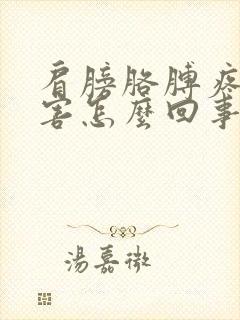 肩膀胳膊疼
害怎麼回事
湯嘉微